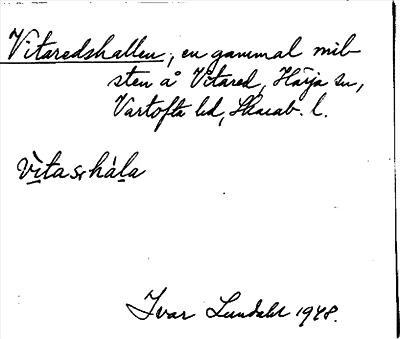 Vitaredshallen, en gammal mil-
sten å Vitared, Härja sn,
Vartofta hd, Skarab. l.
vìtasṣhála
Ivar Lundahl 1948.